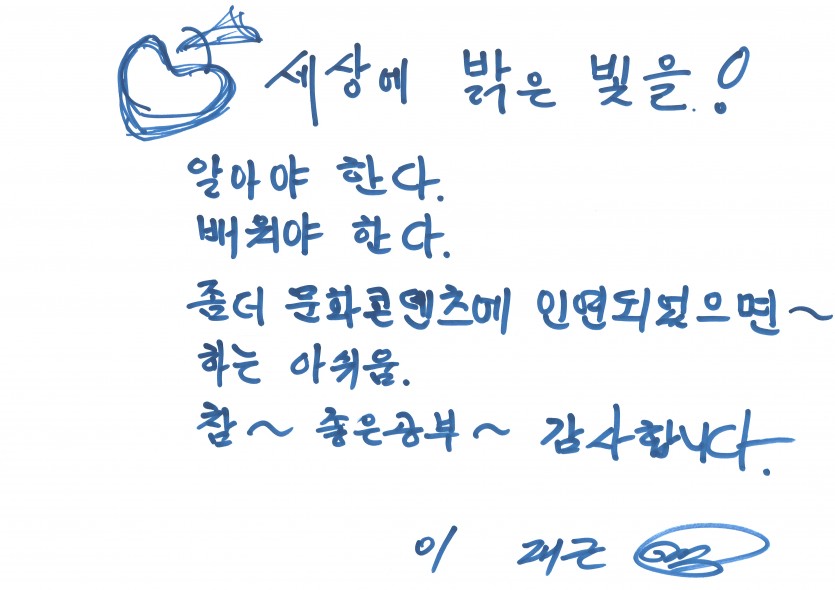 세상에 밝은 빛을!
알아야 한다.
배워야 한다.
좀더 문화콘텐츠에 인연되었으면~
하는 아쉬움.
참~ 좋은공부~ 감사합니다.
이 재근